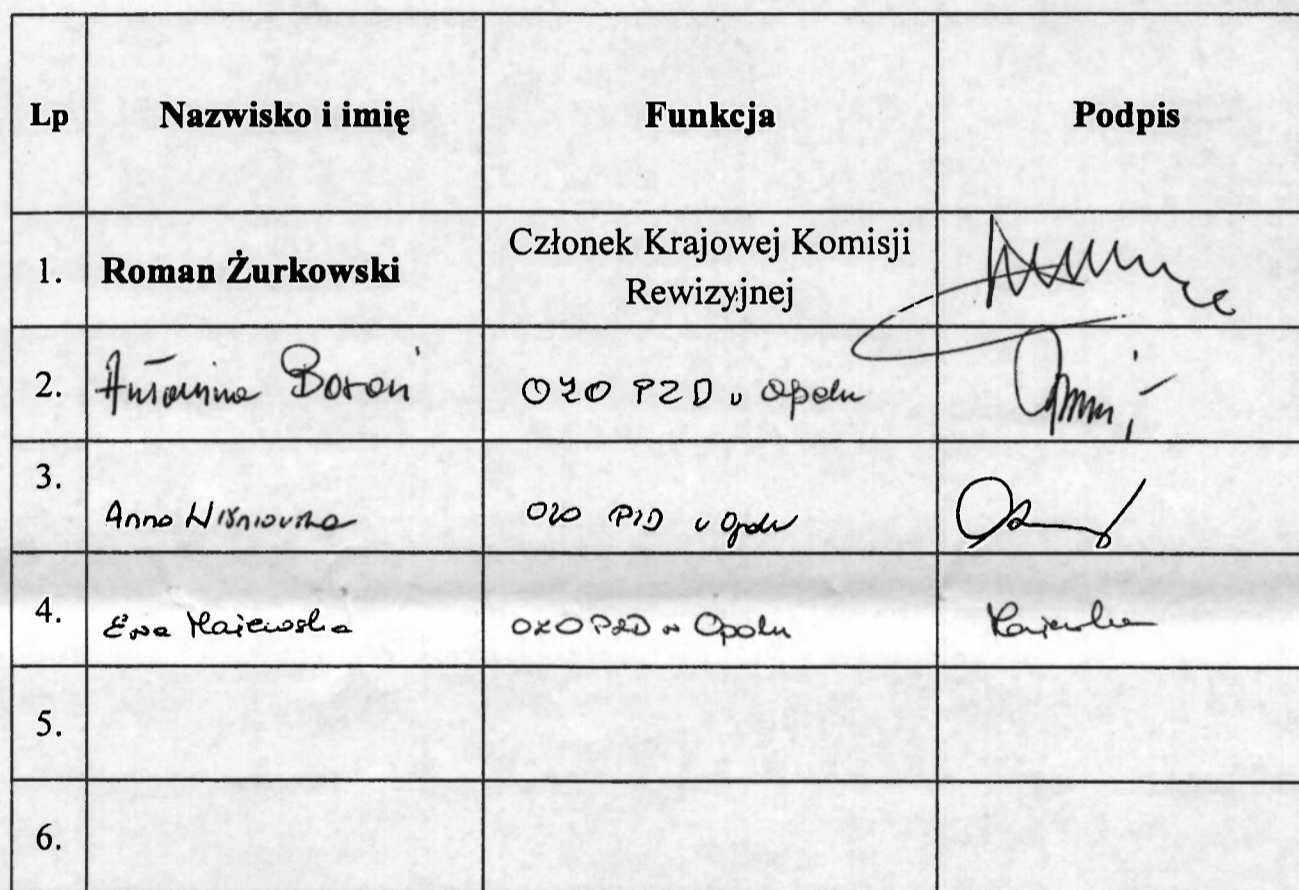 Lp Nazwisko i imię Funkcja Podpis
1. Roman Żurkowski Członek Krajowej Komisji
Rewizyjnej
2. Antonina Boroń OZO PZD w Opolu
3.
Anna Wiśniowska OZO PZD w Opolu
4.
Ewa Majewska OZO PZD w Opolu Majewska
5.
6.